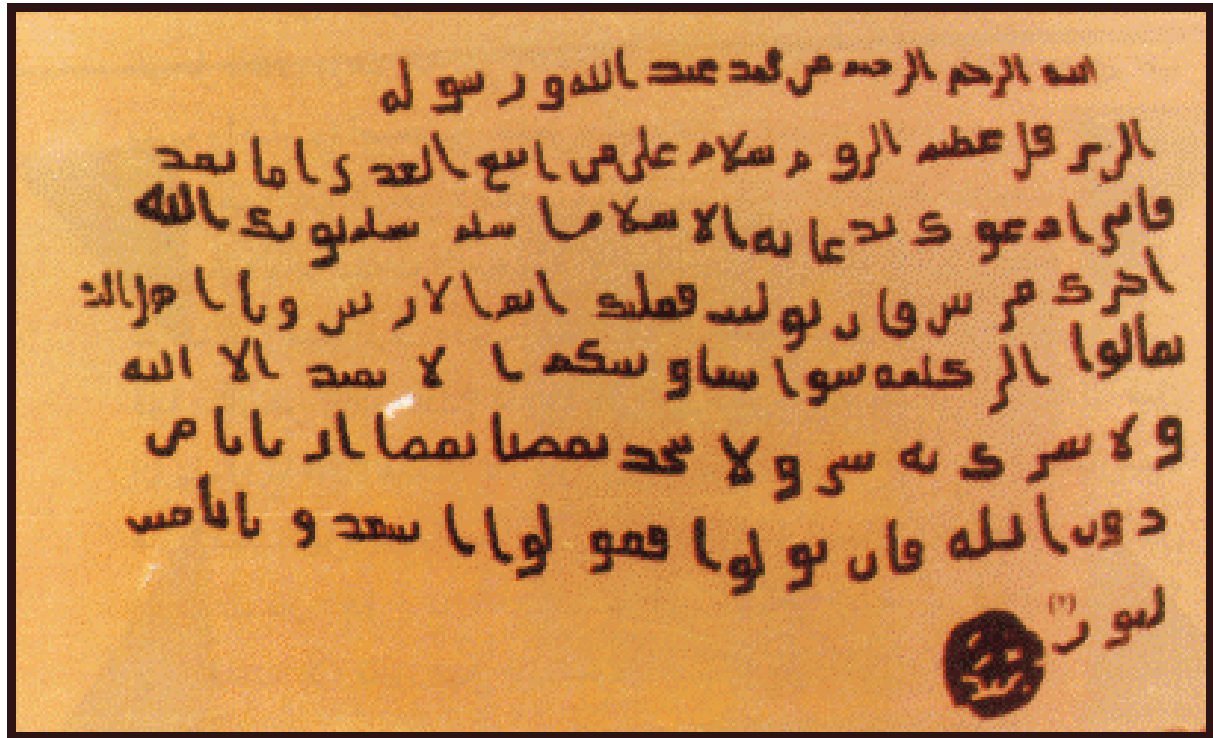 الله الرحمن الرحيم من محمد عبد الله و رسوله
الى هرقل عظيم الروم سلام على من اتبع الهدى اما بعد
فانى ادعوك بدعاية الاسلام اسلم تسلم يوتك الله
اجرك مرتين فان توليت فعليك اثم الاريسين ويا اهل الك
تعالوا الى كلمة سوا بيننا وبينكم ا لا نعبد الا الله
ولا نشرك به شى ولا يتخذ بعضنا بعضا اربابا من
دون الله فان تولوا فقولوا اشهدوا بانا مس
لمون (٢)